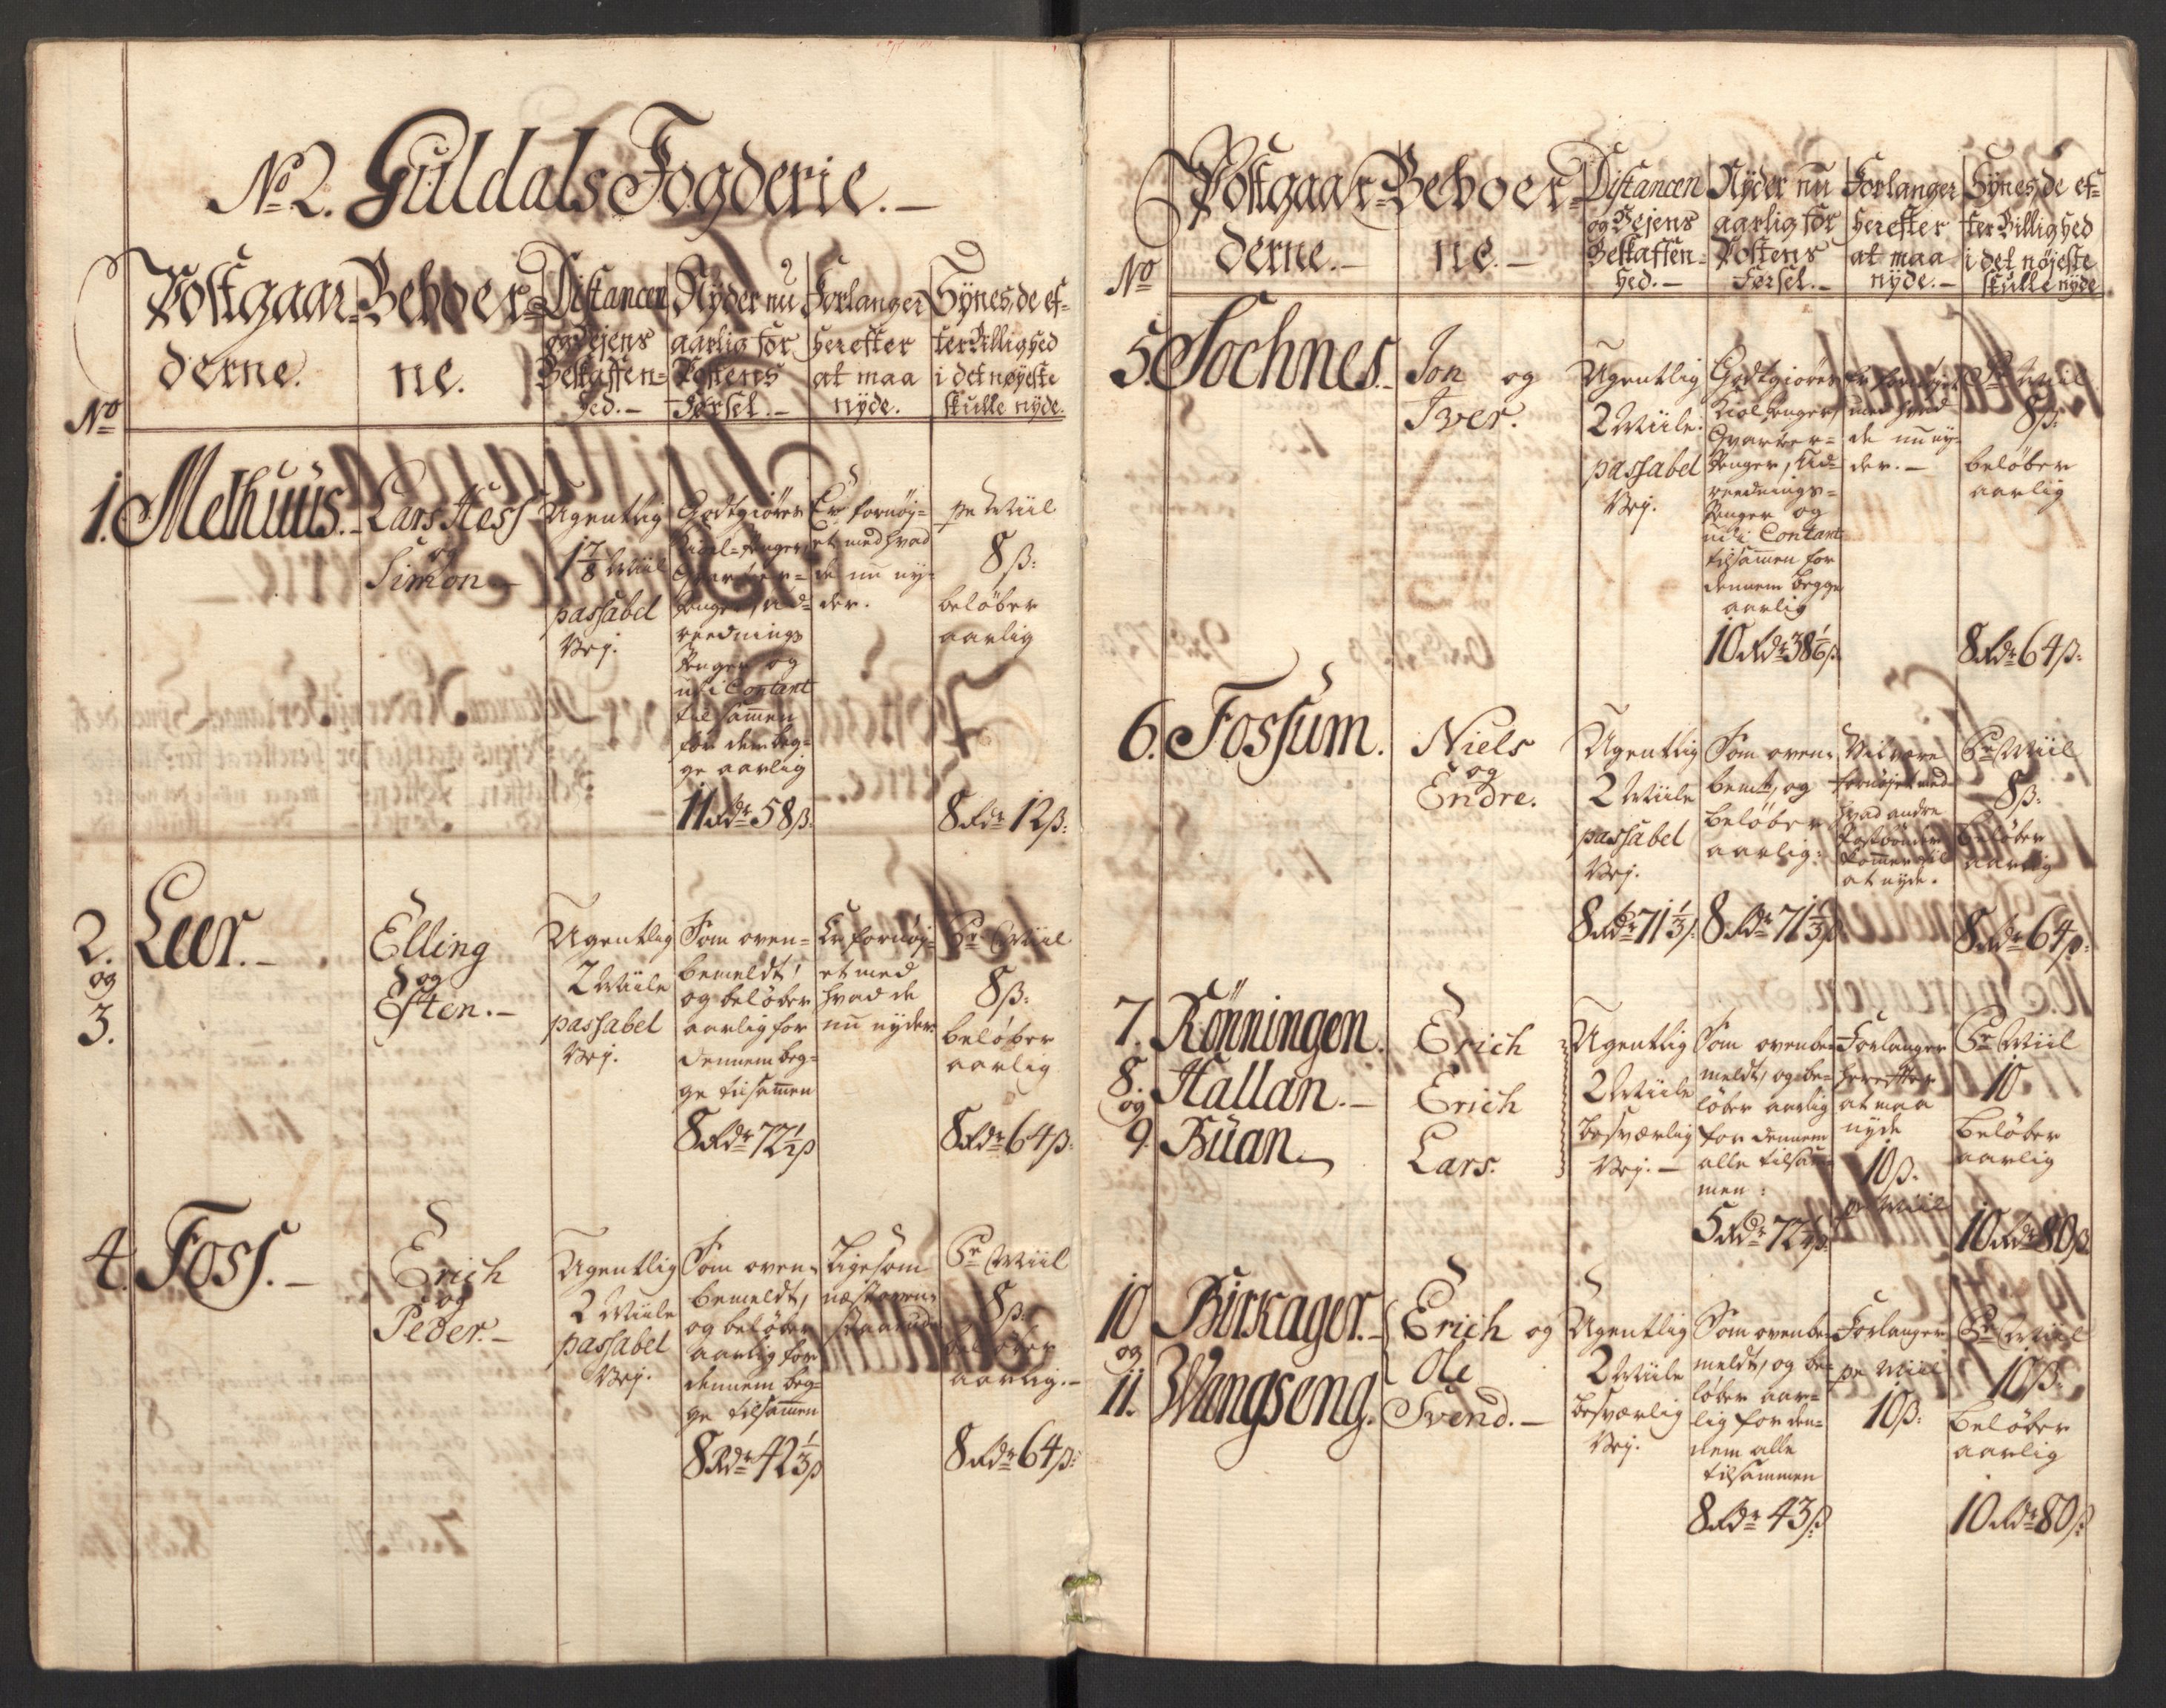 No 2. Guldals Fogderie.–
No
Postgaar=
derne.
Beboer=
ne.
Distancen
og Vejens
Beskaffen=
hed.–
Nyder nu
aarlig for
Postens
Førsel.–
Forlanger
herefter
at maa
nyde.
Synes de ef-
ter Billighed
i det nøyeste
skulle nyde.
1. Melhuus.–
Lars Hess
og
Simon –
Ugentlig
1 7/8 Miil
passabel
Vej.
Godtgiøres
Kiol=Penger,
Qvarter=
Penger, Ud=
reednings
Penger og
udi Contant
tilsam̄en
for dem beg=
ge aarlig
11 Rdr 58 ß.
Er fornøy=
et med hvad
de nu ny=
der.
pr Miil
8 ß:
beløber
aarlig
8 Rdr 12 ß:
2.
og
3.
Leer.–
Elling
og
Esten.–
Ugentlig
2 Miile
passabel
Vej.
Som oven=
bemeldt,
og beløber
aarlig for
dennem beg=
ge tilsam̄en
8 Rdr 72 1/2 ß
Er fornøy=
et med
hvad de
nu nyder.
Pr Miil
8 ß:
beløber
aarlig
8 Rdr 64 ß.
4. Foss.–
Erich
og
Peder.–
Ugentlig
2 Miile
passabel
Vej.
Som oven=
bemeldt,
og beløber
aarlig for
dennem beg=
ge tilsam̄en
8 Rdr 42 1/3 ß
Ligesom
næst oven=
Pr Miil
8 ß:
beløber
aarlig.–
8 Rdr 64 ß:
No
Postgaar=
derne.–
Beboer=
ne.–
Distancen
og Vejens
Beskaffen=
hed.–
Nyder nu
aarlig for
Postens
Førsel.–
Forlanger
herefter
at maa
nyde.–
Synes de ef=
ter Billighed
i det nøjeste
skulle nyde
5. Sochnes.–
Jon og
Iver.
Ugentlig
2 Miile.
passabel
Vej.
Godtgiøres
Kiol Penger,
Qvarteer=
Penger, Ud=
reednings=
Penger og
udi Contant
tilsam̄en for
dennem begge
aarlig
10 Rdr 38 1/6 ß.
Er fornøjet
med hvad
de nu ny=
der.–
Pr Miil
8 ß:
beløber
aarlig
8 Rdr 64 ß:
6. Fossum.
Niels
og
Endre.
Ugentlig
2 Miile
passabel
Vej.
8 Rdr 71 1/3 ß.
Som oven=
bemt, og
beløber
aarlig:
8 Rdr 71 1/3 ß
Vil være
fornøjet med
hvad andre
Postbønder
kommer til
at nyde.
Pr Miil
8 ß:
beløber
aarlig
8 Rdr 64 ß:
7. Rønningen.
8. Hallan.–
og
9. Buan
Erich
Erich
Lars.
Ugentlig
2 Miile
besværlig
Vej.–
Som ovenbe=
meldt, og be=
løber aarlig
for dennem
alle tilsam=
men:
5 Rdr 72 1/2 ß.
Forlanger
herefter
at maa
nyde
10 ß.
pr Miil
Pr Miil
10
beløber
aarlig
10 Rdr 80 ß.
10 Birkager.–
og
11. Wangseng.
Erich og
Ole
Svend.–
Ugentlig
2 Miile
besværlig
Vej.
Som ovenbe=
meldt, og be=
løber aar=
lig for den=
nem alle
tilsammen
8 Rdr 43 ß
Forlanger
pr Miil
10 ß.
Pr Miil
10 ß:
beløber
aarlig
10 Rdr 80 ß: